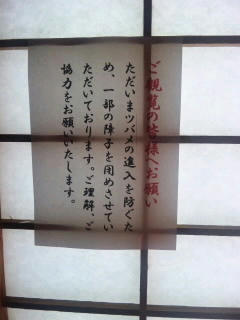 ご観覧の皆様へお願い
ただいまツバメの進入を防ぐた
め、一部の障子を閉めさせてい
ただいております。ご理解、ご
協力をお願いいたします。